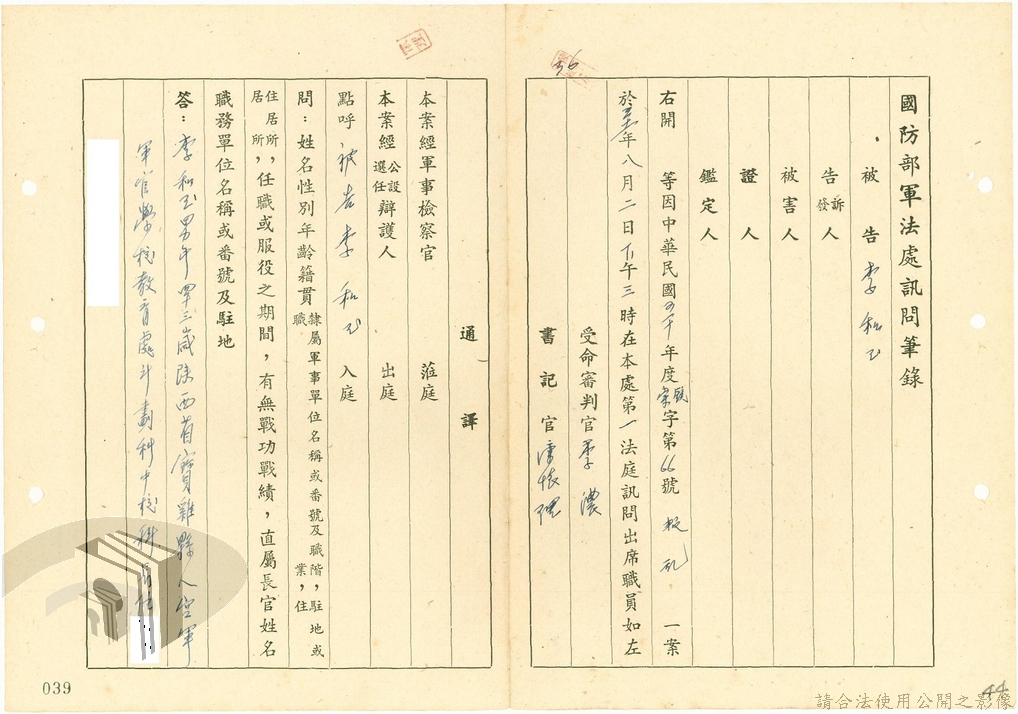 國防部軍法處訊問筆錄
被告 李和玉
告訴發人
被害人
證人
鑑定人
右開 等因中華民國五十年度 字第66號 叛亂 一案
於 年八月二日下午三時在本處第一法庭訊問出席職員如左
受命審判官 李濃
書記官
通譯
本案經軍事檢察官 蒞庭
本案經公設選任辯護人 出庭
點呼被告李和玉入庭
問：姓名性別年齡籍貫隸屬軍事單位名稱或番號及職階，駐地或職業，住
住居所，任職或服役之期間，有無戰功戰績，直屬長官姓名
職務單位名稱或番號及駐地
答：李和玉男年四十三歲陝西省寶雞縣人空軍
軍官學校教育處計劃科中校科員住
56
039
44
請合法使用公開之影像